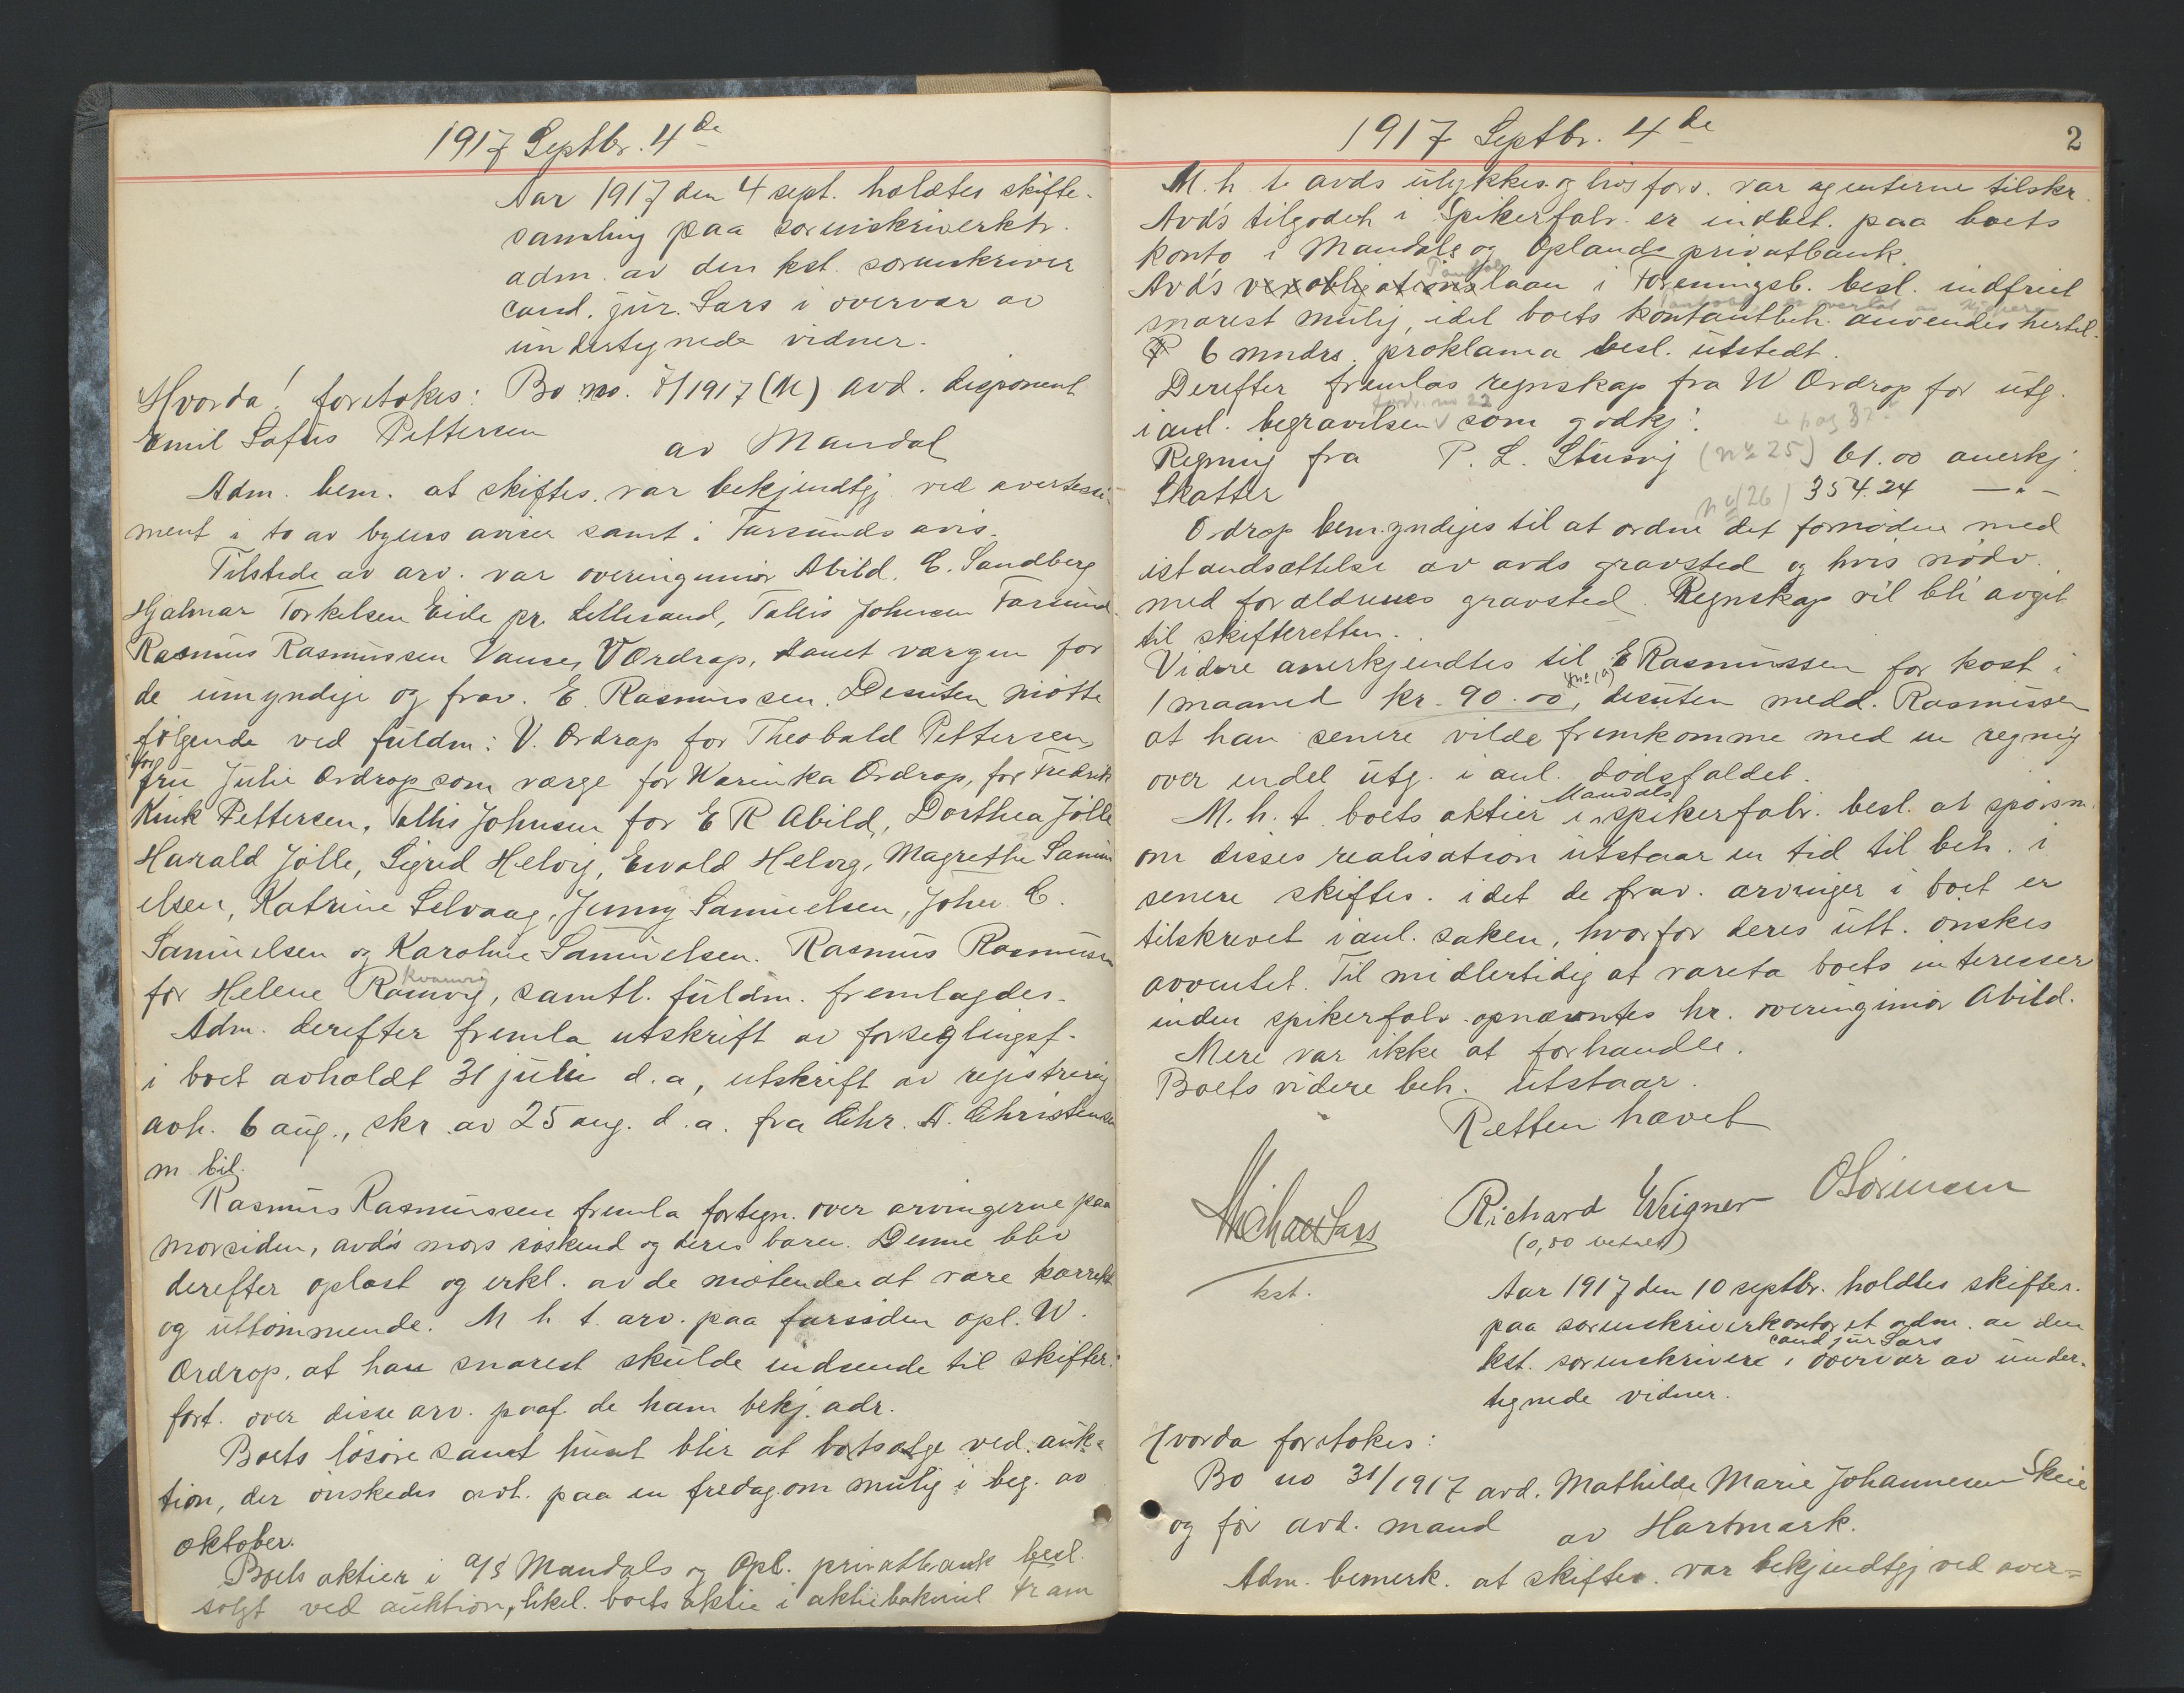 1917 Septbr. 4de
Aar 1917 den 4 sept. holdtes skifte-
samling paa sorenskriverktr.
adm. av den kst. sorenskriver
cand. jur. Sars i overvær av
undertegnede vidner.
Hvorda! foretokes: Bo no. 7/1917 (M) avd. disponent
Emil Sofus Pettersen
av Mandal
Adm. bem. at skiftes. var bekjendtgj ved avertesse-
ment i to av byens aviser samt i Farsunds avis.
Tilstede av arv. var overingeniør Abild, E. Sandberg
Hjalmar Torkelsen Eide pr. Lillesand, Tallis Johnsen Farsund
Rasmus Rasmussen Vanse, V Ordrop, samt værgen for
de umyndige og frav. E. Rasmussen. Desuten møtte
følgende ved fuldm: V. Ordrop for Theobald Pettersen,
for
fru Julie Ordrop som værge for Warinka Ordrop, for Fredrik
Kink Pettersen, Tallis Johnsen for E R Abild, Dorthea Jølle
Harald Jølle, Sigrid Helvig, Ewald Helvig, Magrethe Samu
elsen, Katrine Selvaag, Jenny Samuelsen, John E.
Samuelsen og Karoline Samuelsen. Rasmus Rasmussen
Kvamvig
for Helene Ramvig, samtl. fuldm. fremlagdes.
Adm. derefter fremla utskrift av forseglingsf.
i boet avholdt 31 juli d.a, utskrift av registrering
avh. 6 aug., skr av 25 aug. d.a. fra Chr. A. Christensen
m bil.
Rasmus Rasmussen fremla fortegn. over arvingerne paa
morsiden, avd's mors søskend og deres barn. Denne blev
derefter oplæst og erkl. av de møtende at være korrekt
og uttømmende. M h t. arv. paa farssiden opl. W.
Ordrop. at han snarest skulde indsende til skifter.
fort. over disse arv. paaf. de ham bekj. adr.
Boets løsøre samt huset blir at bortsælge ved auk-
tion, der ønskedes avh. paa en fredag om mulig i beg. av
oktober.
Boets aktier i A/S Mandals og Opl. privatbank besl.
solgt ved auktion, likel. boets aktie i aktiebakeriet Fram
1917 Septbr. 4de
2
M.h.t. avds ulykkes og livsfors. var agenterne tilskr.
Avd's tilgodeh i Spikerfabr. er indbet. paa boets
konto i Mandals og Oplands privatbank.
Avd's laan i Foreningsb. besl. indfriet
snarest mulig, idet boets kontantbeh. anvendes hertil.
6 mndrs. proklama besl. utstedt.
Derefter fremlas regnskap fra W Ordrop for utg.
fordr. no 22
i anl. begravelsen som godkj.
Regning fra P. L. Stusvig (no 25) 61.00 anerkj.
Skatter no 26 354.24 —"—
Ordrop bemyndiges til at ordne det fornødne med
istandsættelse av avds gravsted og hvis nødv.
med forældrenes gravsted. Regnskap vil bli avgit
til skifteretten.
Videre anerkjendtes til E Rasmussen for kost i
1 maaned kr. 90.00, desuten medd. Rasmussen
at han senere vilde fremkomme med en regnig
over endel utg. i anl. dødsfaldet.
Mandals
M.h.t. boets aktier i spikerfabr. besl. at spørsm.
om disses realisation utstaar en tid til beh. i
senere skiftes. idet de frav. arvinger i boet er
tilskrevet i anl. saken, hvorfor deres utt. ønskes
avventet. Til midlertidig at vareta boets interesser
inden spikerfabr. opnævntes hr. overingeniør Abild.
Mere var ikke at forhandle.
Boets videre beh. utstaar.
Retten hævet
Michael Sars
Richard Weigner
OSørensen
kst.
(0,80 betalt)
Aar 1917 den 10 septbr. holdtes skifter.
paa sorenskriverkontoret adm. av den
cand jur Sars
kst. sorenskriver i overvær av under-
tegnede vidner.
Hvorda foretokes:
Bo no 31/1917 avd. Mathilde Marie Johannesen Skeie
og før avd. mand av Hartmark.
Adm. bemerk. at skiftes. var bekjendtgj ved aver=